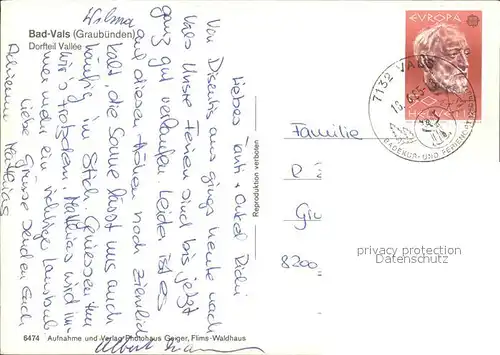 Bad-Vals (Graubünden)
Dorfteil Vallée
Liebes Tanti + Onkel
Von Disentis aus gings heute nach
Vals. Unsre Ferien sind bis jetzt
ganz gut verlaufen. Leider ist es
auf diesen Höhen noch ziemlich
kalt, die Sonne lässt uns auch
häufig im Stich. Geniessen tun
wir's trotzdem. Matthias wird im-
mer mehr ein richtiger Lausbub.
Liebe Grüsse senden Euch
Matthias
Albert
Wilma
Reproduktion verboten
6474 Aufnahme und Verlag Photohaus Geiger, Flims-Waldhaus
EUROPA
7132 VALS
BADEKUR- UND FERIENORT
Familie
8200
privacy protection
Datenschutz